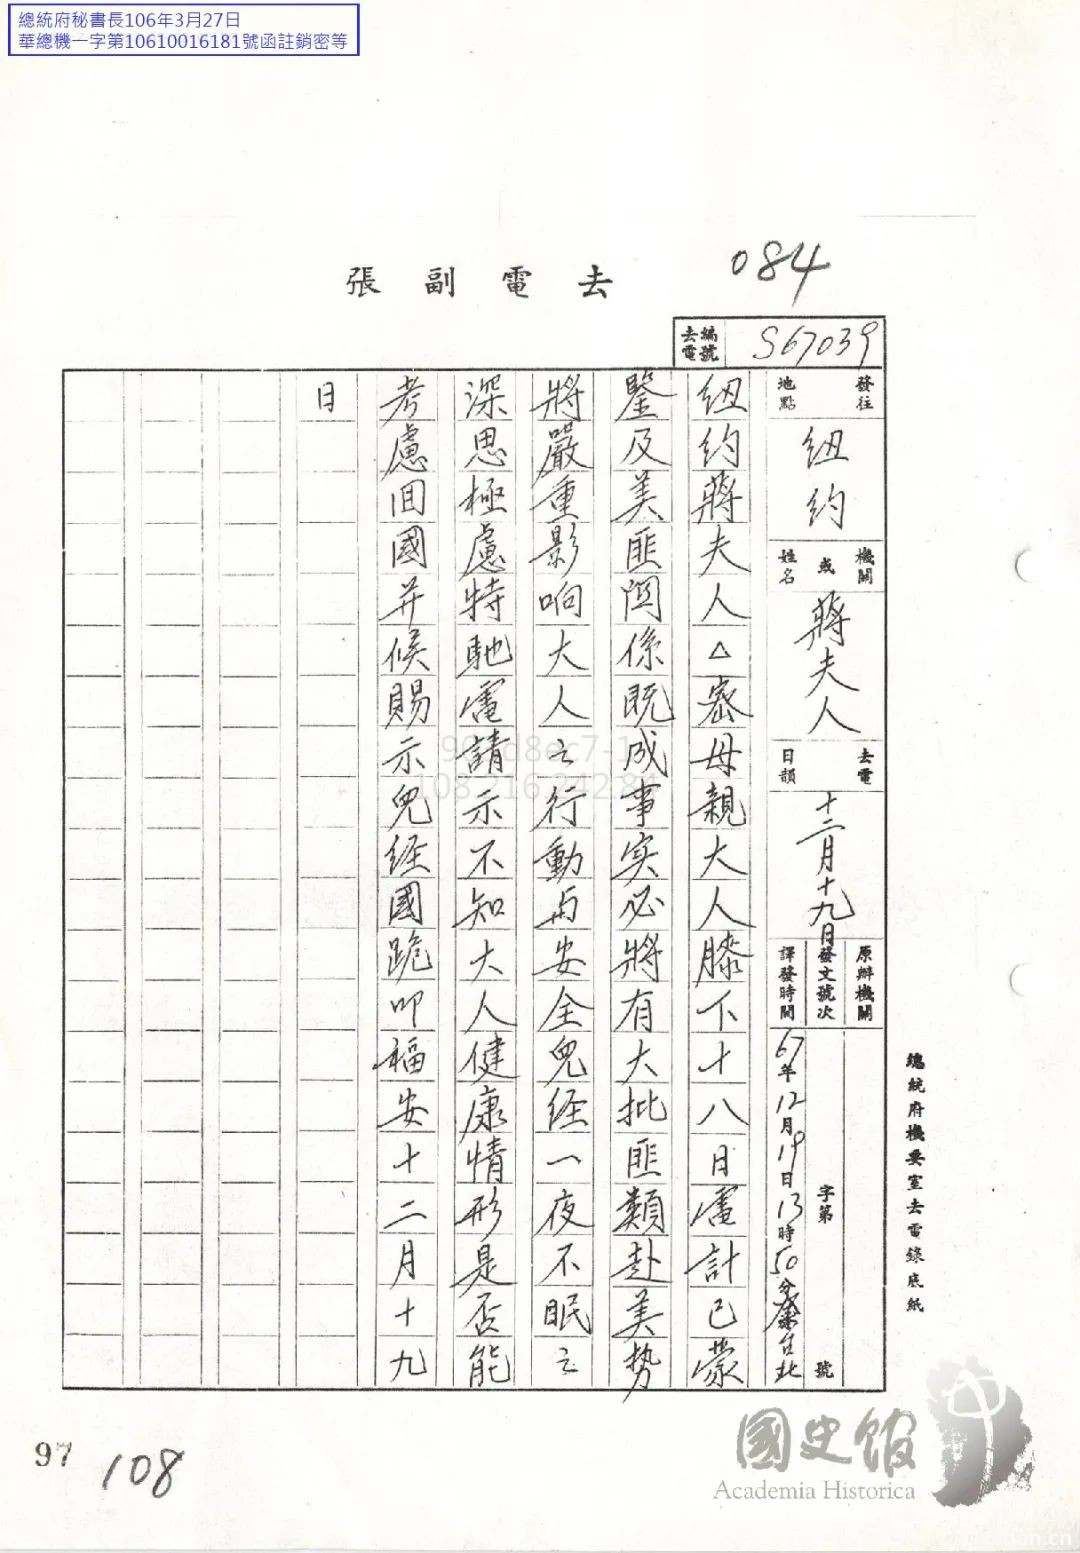 總統府秘書長106年3月27日
華總機一字第10610016181號函註銷密等
084
去電副張
去電編號
S67039
發往地點
紐約
機關或姓名
蔣夫人
去電日韻
十二月十九日
原辦機關
發文號次
字第 號
譯發時間
67年12月19日13時50分 台北
紐約蔣夫人△密母親大人膝下十八日電計已蒙
鑒及美匪関係既成事实必將有大批匪類赴美势
將嚴重影响大人之行動与安全兒经一夜不眠之
深思極慮特馳電請示不知大人健康情形是否能
考慮回國并候賜示兒经國跪叩福安十二月十九
日
總統府機要室去電錄底紙
97
108
國史館
Academia Historica